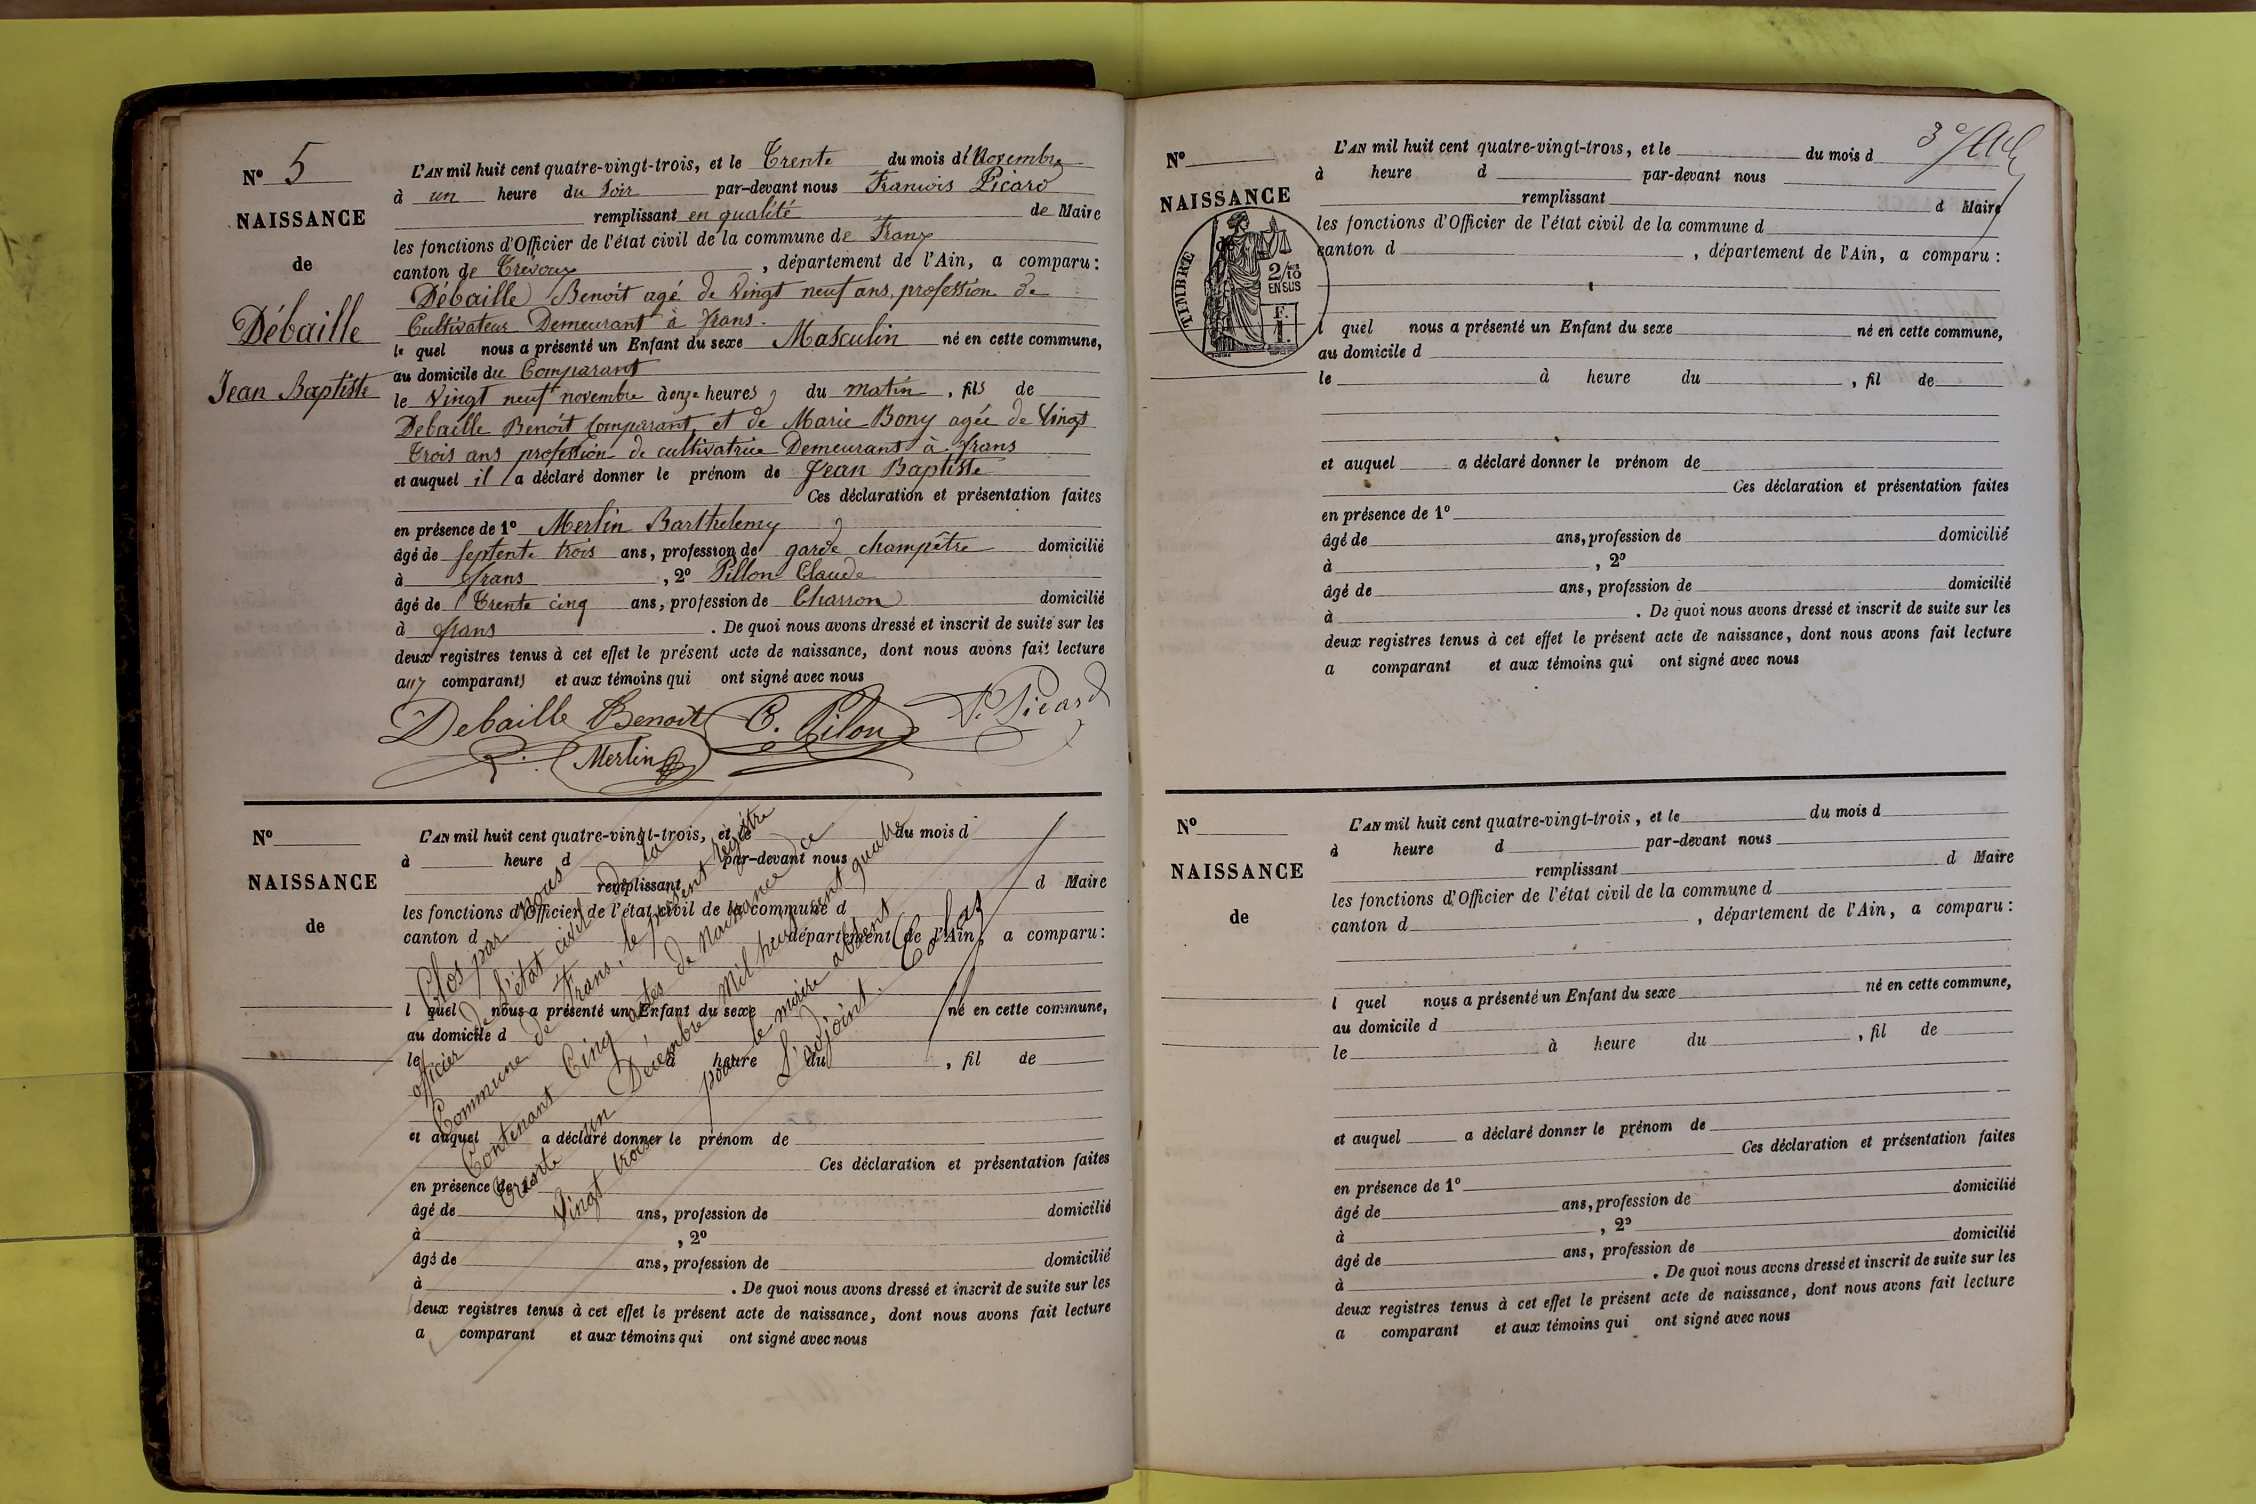 N° 5
NAISSANCE
de
Débaille
Jean Baptiste
L'AN mil huit cent quatre-vingt-trois, et le Trente du mois de Novembre
à un heure du Soir par-devant nous François Picard
remplissant en qualité de Maire
les fonctions d'Officier de l'état civil de la commune de Frans
canton de Trévoux, département de l'Ain, a comparu :
Débaille Benoit agé de vingt neuf ans, profession de
Cultivateur Demeurant à frans.
le quel nous a présenté un Enfant du sexe Masculin né en cette commune,
au domicile du Comparant
le Vingt neuf novembre à onze heures du matin, fils de
Debaille Benoit Comparant et de Marie Bony agée de Vingt
trois ans profession de cultivatrice Demeurant à frans
et auquel il a déclaré donner le prénom de Jean Baptiste
Ces déclaration et présentation faites
en présence de 1° Merlin Barthelemy
âgé de septente trois ans, profession de garde champêtre domicilié
à frans, 2° Pillon Claude
âgé de Trente cinq ans, profession de Charron domicilié
à frans. De quoi nous avons dressé et inscrit de suite sur les
deux registres tenus à cet effet le présent acte de naissance, dont nous avons fait lecture
aux comparants et aux témoins qui ont signé avec nous
Debaille Benoit C. Pilon Picard
Merlin
N°
NAISSANCE
de
L'AN mil huit cent quatre-vingt-trois, et le du mois d
à heure d par-devant nous
remplissant d Maire
les fonctions d'Officier de l'état civil de la commune d
canton d département de l'Ain, a comparu :
l quel nous a présenté un Enfant du sexe né en cette commune,
au domicile d
le à heure du , fil de
et auquel a déclaré donner le prénom de
Ces déclaration et présentation faites
en présence de 1°
âgé de ans, profession de domicilié
à , 2°
âgé de ans, profession de domicilié
à . De quoi nous avons dressé et inscrit de suite sur les
deux registres tenus à cet effet le présent acte de naissance, dont nous avons fait lecture
a comparant et aux témoins qui ont signé avec nous
Clos par nous
officier de l'état civil de la
Commune de Frans, le présent registre
Contenant Cinq actes de Naissance ce
trente un Décembre mil huit cent quatre
Vingt trois pour le maire absent
L'adjoint. Colas
3e
N°
NAISSANCE
de
TIMBRE
2/10
EN SUS
F.
1.
L'AN mil huit cent quatre-vingt-trois, et le du mois d
à heure d par-devant nous
remplissant d Maire
les fonctions d'Officier de l'état civil de la commune d
canton d , département de l'Ain, a comparu :
l quel nous a présenté un Enfant du sexe né en cette commune,
au domicile d
le à heure du , fil de
et auquel a déclaré donner le prénom de
Ces déclaration et présentation faites
en présence de 1°
âgé de ans, profession de domicilié
à , 2°
âgé de ans, profession de domicilié
à . De quoi nous avons dressé et inscrit de suite sur les
deux registres tenus à cet effet le présent acte de naissance, dont nous avons fait lecture
a comparant et aux témoins qui ont signé avec nous
N°
NAISSANCE
de
L'AN mil huit cent quatre-vingt-trois, et le du mois d
à heure d par-devant nous
remplissant d Maire
les fonctions d'Officier de l'état civil de la commune d
canton d , département de l'Ain, a comparu :
l quel nous a présenté un Enfant du sexe né en cette commune,
au domicile d
le à heure du , fil de
et auquel a déclaré donner le prénom de
Ces déclaration et présentation faites
en présence de 1°
âgé de ans, profession de domicilié
à , 2°
âgé de ans, profession de domicilié
à . De quoi nous avons dressé et inscrit de suite sur les
deux registres tenus à cet effet le présent acte de naissance, dont nous avons fait lecture
a comparant et aux témoins qui ont signé avec nous